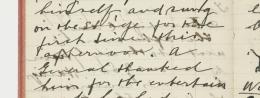 himself and sung
on the stage for the
first time this
afternoon. A
General thanked
him for the entertain